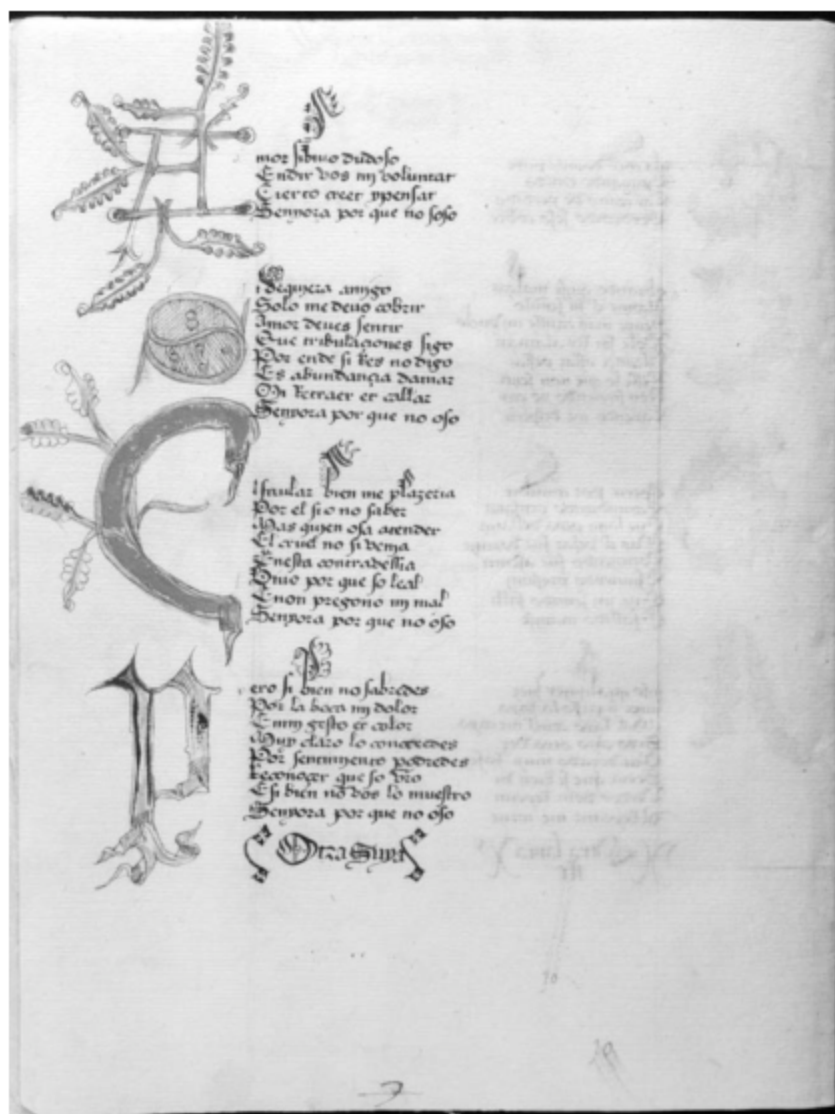 A
mor si biuo dudoso
En dir vos mi voluntat
Cierto creer y pensat
Senyora por que no soso
i dequiera amigo
Solo me deuo cobrir
Amor deues sentir
Que tribulaciones sigo
Por ende si Res no digo
Es abundançia damar
Mi Retraer et callar
Senyora por que no oso
A
fablar bien me plazeria
Por el si o no saber
Mas quien osa atender
El cruel no si venia
En esta
Biuo por que so leal
E non pregono mi mal
Senyora por que no oso
P
ero si bien no sabredes
Por la boca mi dolor
En mi gesto et color
Muy claro lo conoceredes
Por sentimiento podredes
Reconocer que so vro
E si bien no vos lo muestro
Senyora por que no oso
Otra Suya